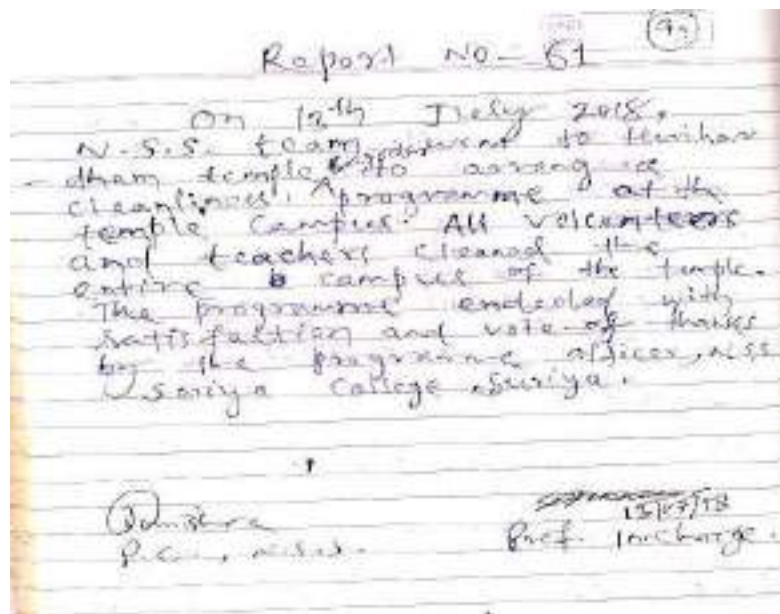 Report NO - 61
On 12th July 2018,
N.S.S. team went to Harihar
dham temple to arrange a
cleanliness programme at the
temple campus. All volunteers
and teachers cleaned the
entire campus of the temple.
The programme endeded with
satisfaction and vote of thanks
by the programme officer, NSS
Suriya College, Suriya.
P.O., N.S.S.
Prof. Incharge.